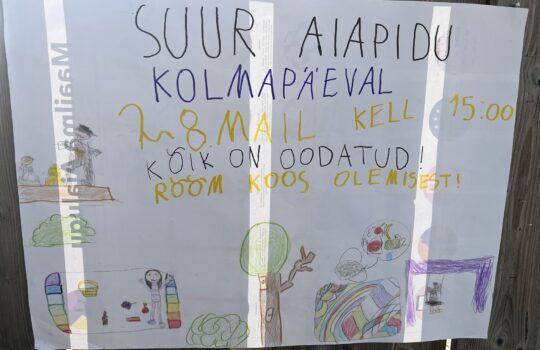 SUUR AIAPIDU
KOLMAPÄEVAL
28. MAIL KELL 15:00
KÕIK ON OODATUD!
RÕÕM KOOS OLEMISEST!